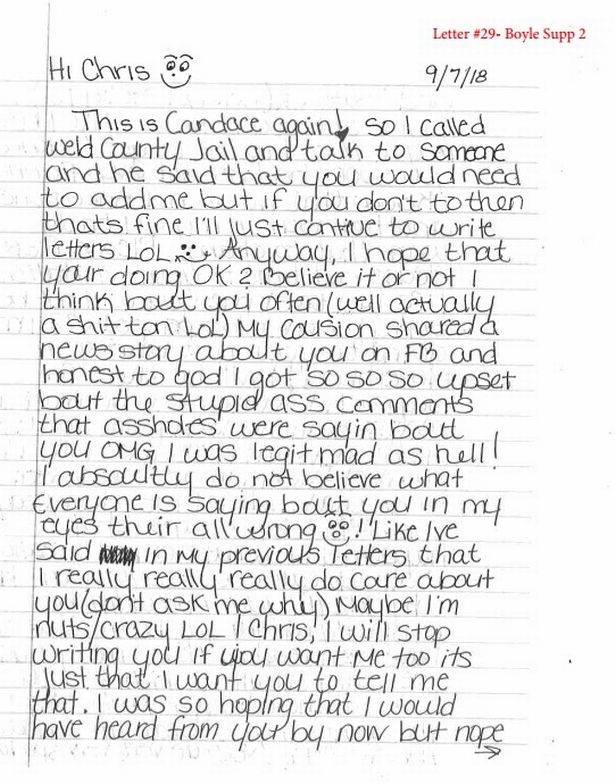 Letter #29- Boyle Supp 2
Hi Chris
9/7/18
This is Candace again! So I called
Weld County Jail and talk to someone
and he said that you would need
to add me but if you don't to then
thats fine I'll just contiue to write
letters LOL Anyway, I hope that
your doing OK? Believe it or not I
think bout you often (well actually
a shit ton LoL) My cousion shared a
news story about you on FB and
honest to god I got so so so upset
bout the stupid ass comments
that assholes were sayin bout
you OMG I was legit mad as hell!
I absoultly do not believe what
Everyone is saying bout you in my
eyes their all wrong! Like Ive
said in my previous letters that
I really really really do care about
you (don't ask me why) Maybe I'm
nuts/crazy LoL! Chris, I will stop
writing you if you want me too its
just that I want you to tell me
that. I was so hoping that I would
have heard from you by now but nope
→